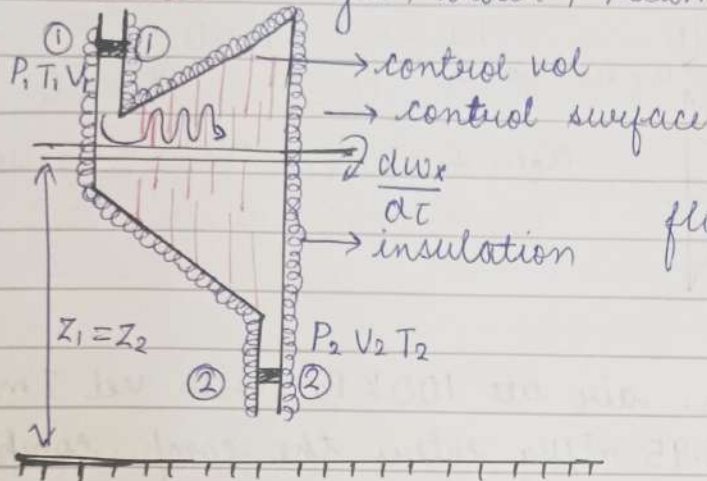 ① ①
P₁ T₁ V₁
→ control vol
→ control surface
dwₓ
dτ
→ insulation
Z₁ = Z₂
P₂ V₂ T₂
② ②